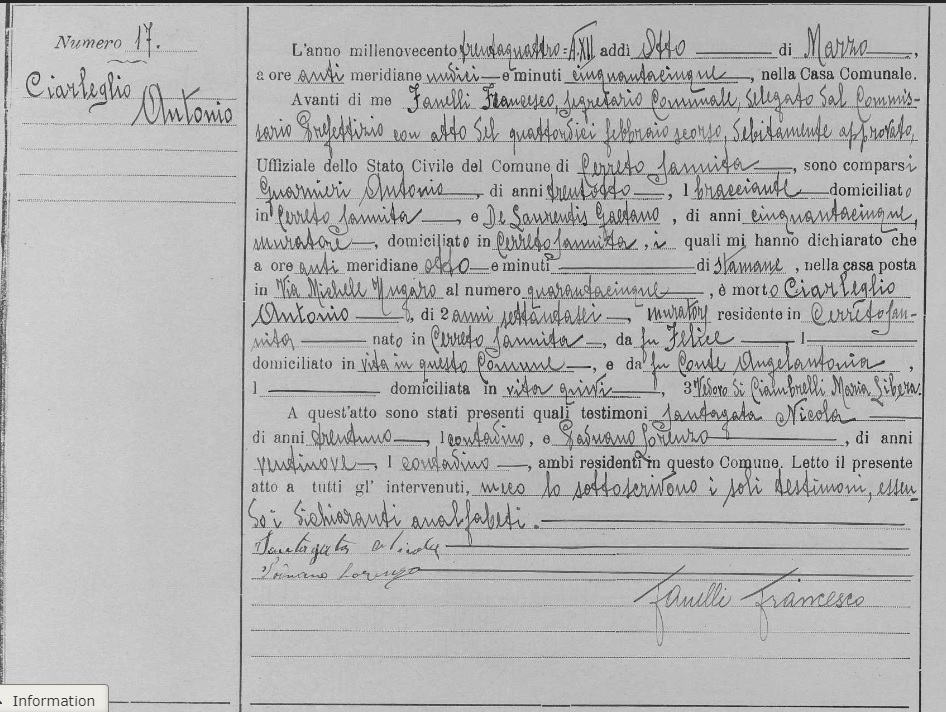 Numero 17.
Ciarleglio
Antonio
L'anno millenovecento trentaquattro = A. XII addì Otto di Marzo,
a ore anti meridiane undici e minuti cinquantacinque, nella Casa Comunale.
Avanti di me Fanelli Francesco, segretario Comunale, delegato dal Commis-
sario Prefettizio con atto del quattordici febbraio scorso, debitamente approvato,
Uffiziale dello Stato Civile del Comune di Cerreto Sannita, sono comparsi
Guarnieri Antonio, di anni trentotto, 1 bracciante domiciliato
in Cerreto Sannita, e De Laurentis Gaetano, di anni cinquantacinque,
muratore, domiciliato in Cerreto Sannita, i quali mi hanno dichiarato che
a ore anti meridiane otto e minuti di stamane, nella casa posta
in Via Michele Ungaro al numero quarantacinque, è morto Ciarleglio
Antonio, di 2 anni settantasei, muratore residente in Cerreto San-
nita nato in Cerreto Sannita, da fu Felice 1
domiciliato in vita in questo Comune, e da fu Conte Angelantonia,
1 domiciliata in vita quivi, 3 Vedovo di Ciambrelli Maria Libera.
A quest'atto sono stati presenti quali testimoni Santagata Nicola
di anni trentuno, 1 contadino, e Padnano Lorenzo, di anni
ventinove, 1 contadino, ambi residenti in questo Comune. Letto il presente
atto a tutti gl' intervenuti, meco lo sottoscrivono i soli testimoni, essen-
do i dichiaranti analfabeti.
Santagata Nicola
Lorenzo
Fanelli Francesco
Information